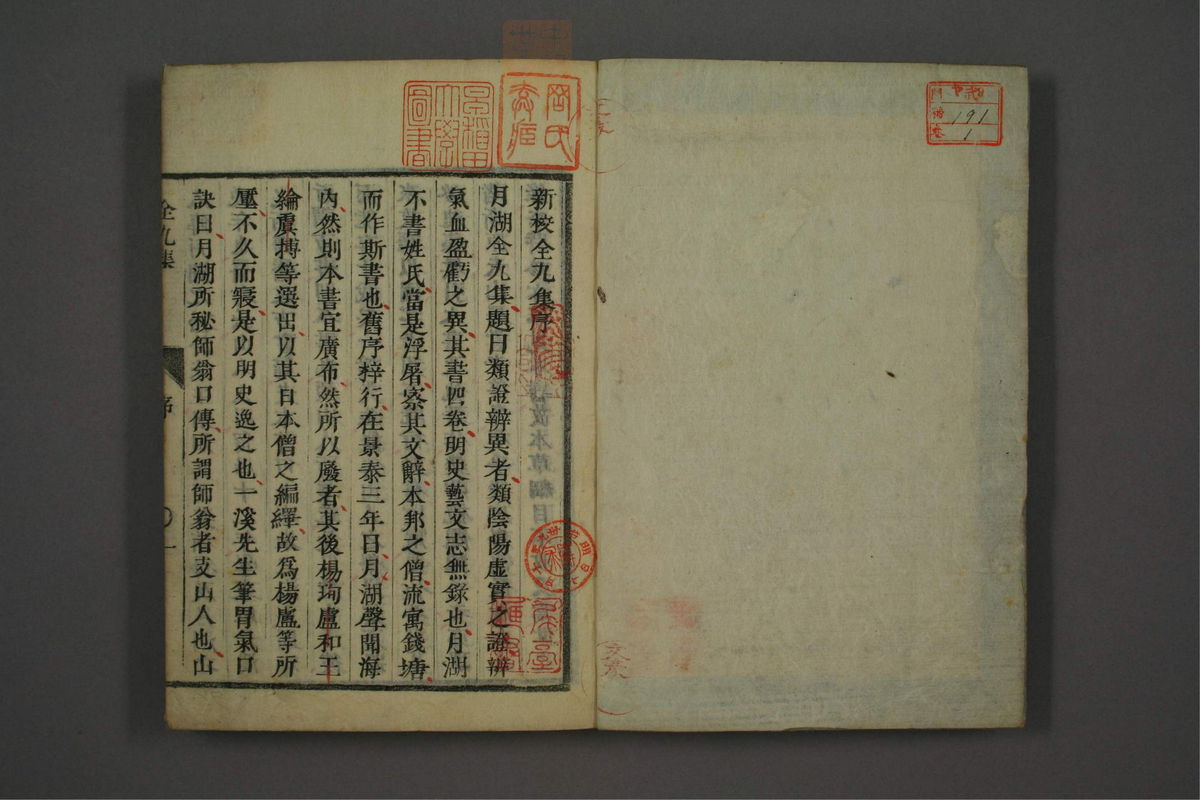 191
1
新校全九集序
月湖全九集題曰類證辨異者類陰陽虛實之證辨
氣血盈虧之異其書四卷明史藝文志無錄也月湖
不書姓氏當是浮屠察其文辭本邦之僧流寓錢塘
而作斯書也舊序梓行在景泰三年日月湖聲聞海
內然則本書宜廣布然所以廢者其後楊珣盧和王
綸虞摶等選出以其日本僧之編繹故爲楊盧等所
壓不久而寢是以明史逸之也一溪先生筆胃氣口
訣曰月湖所秘師翁口傳所謂師翁者支山人也山
全九集
序
一
早稻田大學圖書